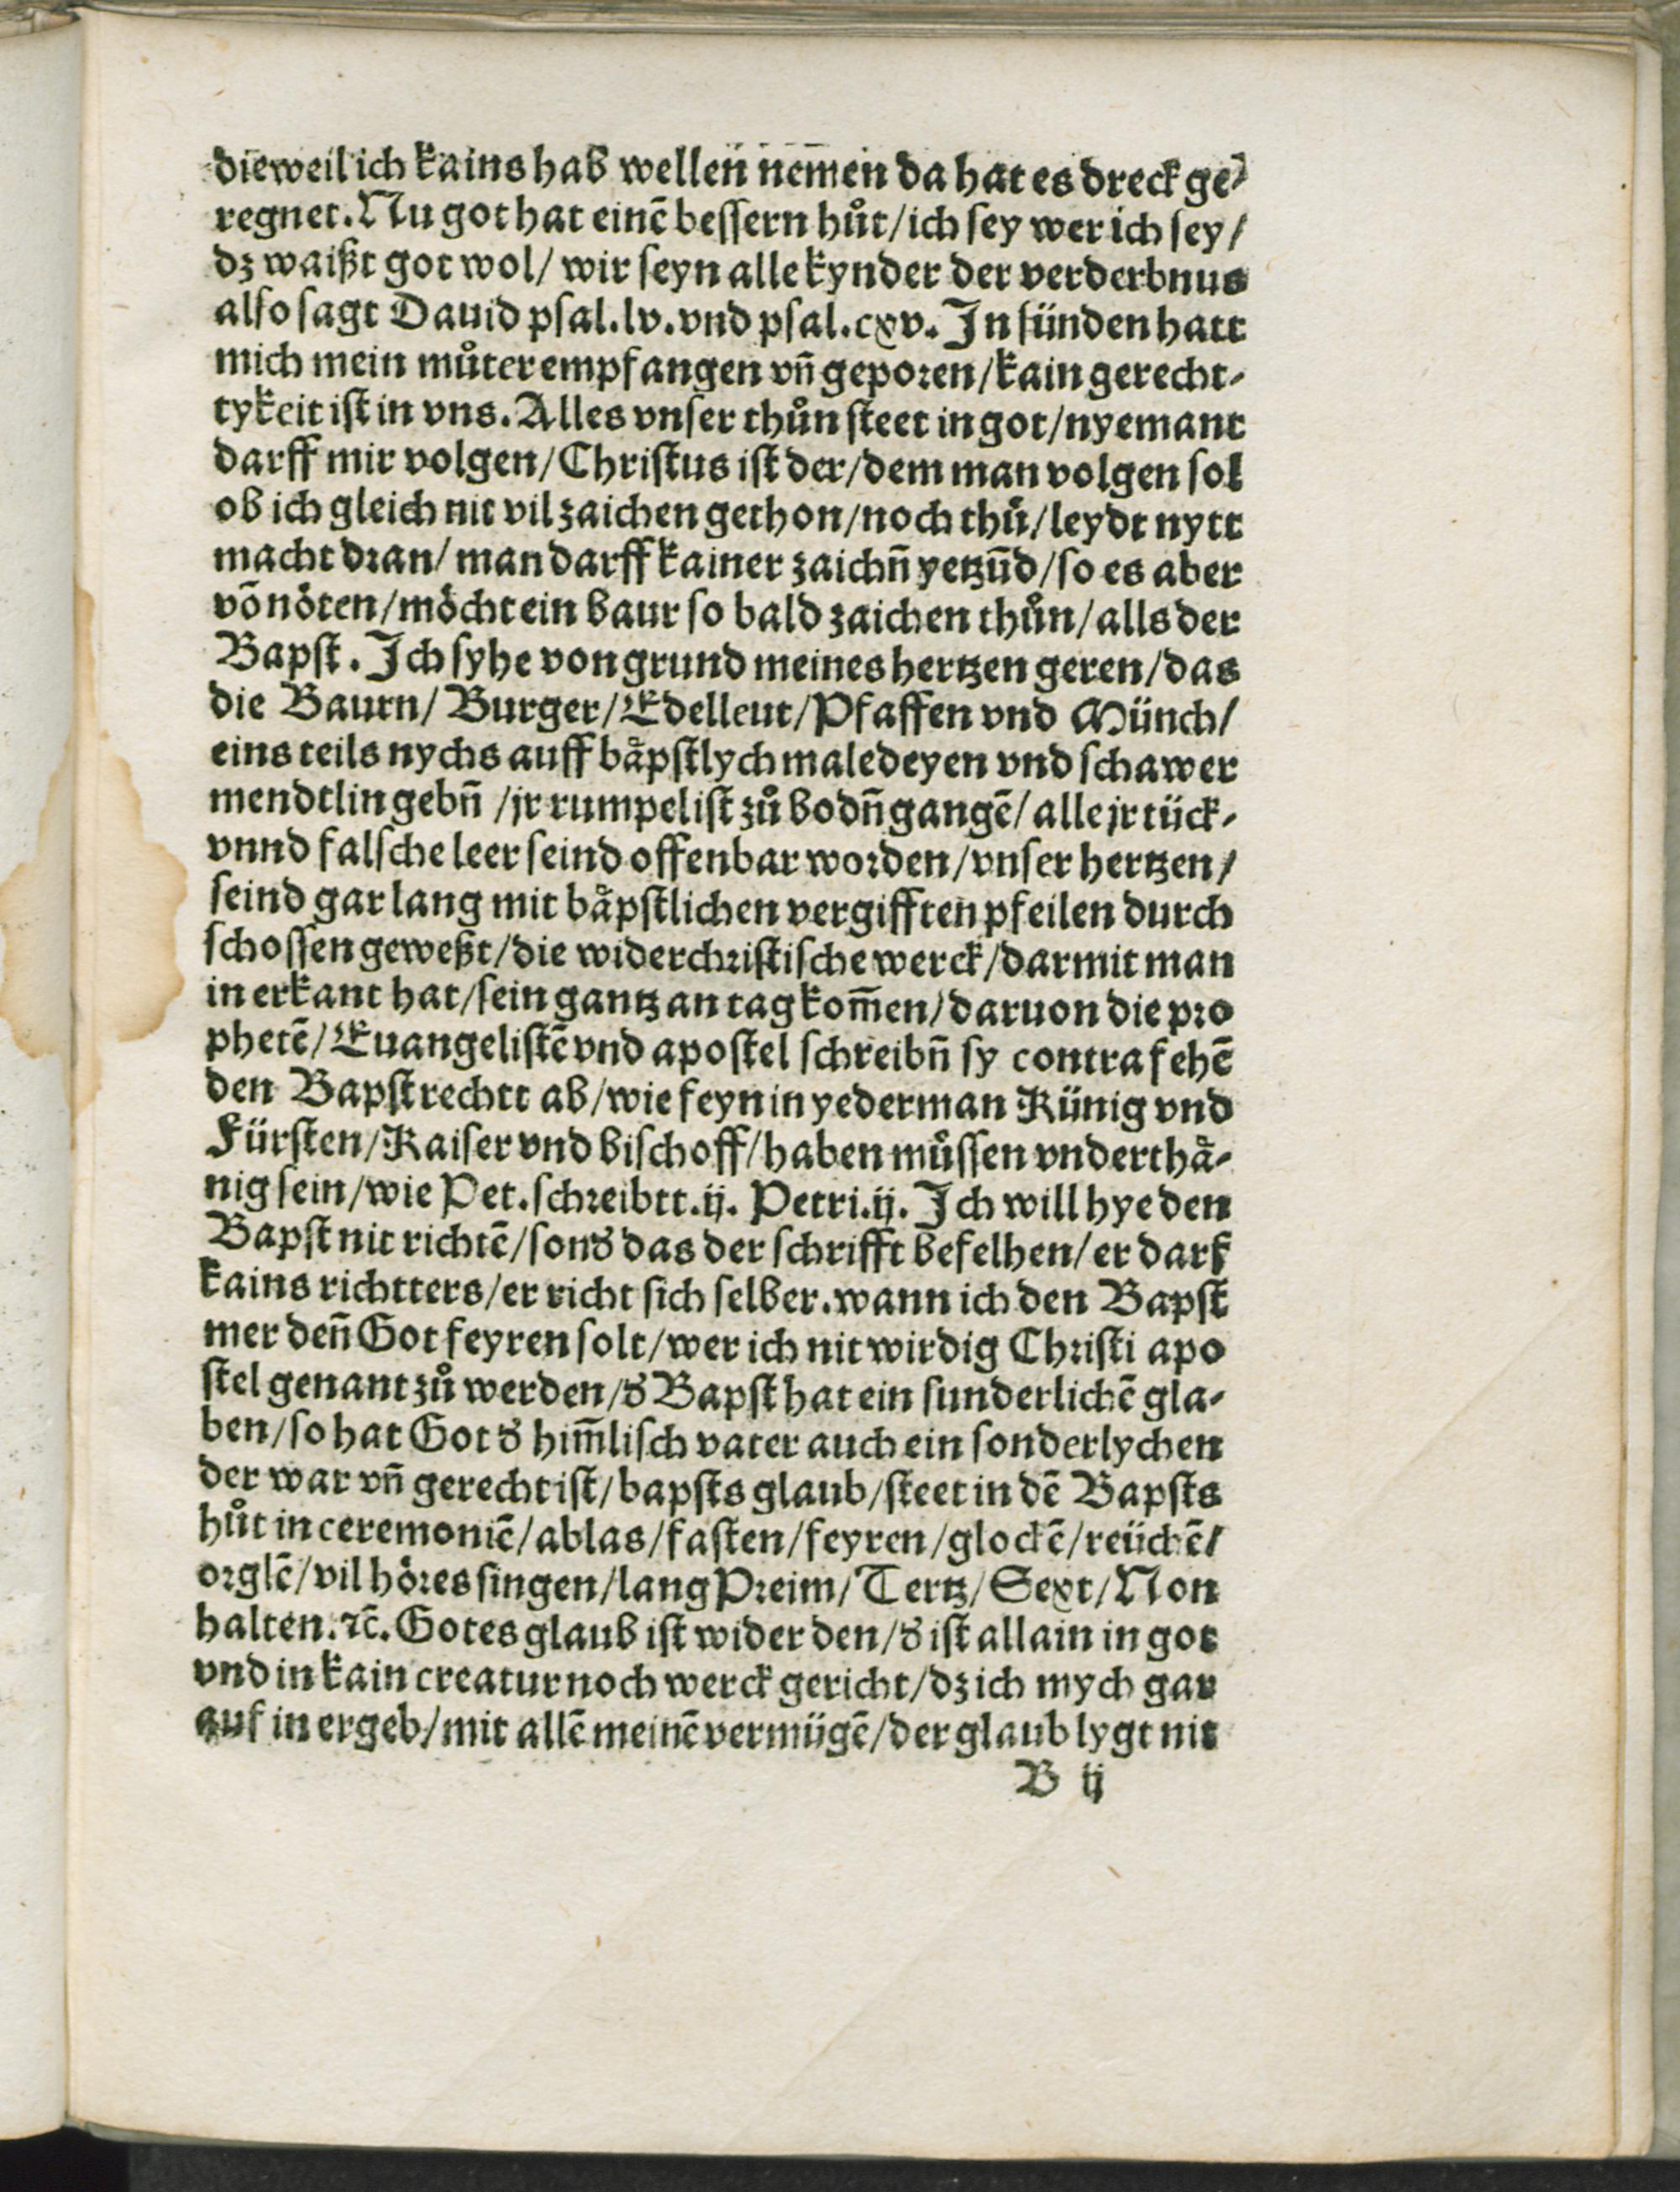 dieweil ich kains hab wellen nem̃en da hat es dreck ge⸗
regnet. Nu got hat einē bessern hůt/ich sey wer ich sey/
dz waißt got wol/ wir seyn alle kynder der verderbnus
also sagt Dauid psal.lv.vnd psal.cxv. In sünden hatt
mich mein můter empfangen vñ geporen/kain gerecht⸗
tykeit ist in vns. Alles vnser thůn steet in got/nyemant
darff mir volgen/Christus ist der/dem man volgen sol
ob ich gleich nit vil zaichen gethon/noch thů/leydt nytt
macht dran/ man darff kainer zaichñ yetzūd/so es aber
vō nöten/möcht ein baur so bald zaichen thůn/alls der
Bapst. Ich syhe von grund meines hertzen geren/das
die Baurn/ Burger/Edelleut/Pfaffen vnd Münch/
eins teils nychs auff bäpstlych maledeyen vnd schawer
mendtlin gebñ /jr rumpel ist zů bodñ gangē/ alle jr tück⸗
vnnd falsche leer seind offenbar worden/vnser hertzen/
seind gar lang mit bäpstlichen vergifften pfeilen durch
schossen geweßt/die widerchristische werck/darmit man
in erkant hat/sein gantz an tag kom̃en/daruon die pro
phetē/Euangelistē vnd apostel schreibñ sy contrafehē
den Bapst rechtt ab/wie feyn in yederman Künig vnd
Fürsten/Kaiser vnd bischoff/haben müssen vnderthä⸗
nig sein/wie Pet.schreibtt.ij. Petri.ij. Ich will hye den
Bapst nit richtē/sonď das der schrifft befelhen/er darf
kains richtters/er richt sich selber.wann ich den Bapst
mer deñ Got feyren solt/wer ich nit wirdig Christi apo
stel genant zů werden/ď Bapst hat ein sunderlichē gla⸗
ben/so hat Got ď him̃lisch vater auch ein sonderlychen
der war vñ gerecht ist/bapsts glaub/steet in dē Bapsts
hůt in ceremoniē/ablas/fasten/feyren/glockē/reüchē/
orglē/vil höres singen/lang Preim/Tertz/Sext/Non
halten.ꝛc̄. Gotes glaub ist wider den/ď ist allain in got
vnd in kain creatur noch werck gericht/dz ich mych gar
auf in ergeb/mit allē meinē vermügē/der glaub lygt nit
B ij